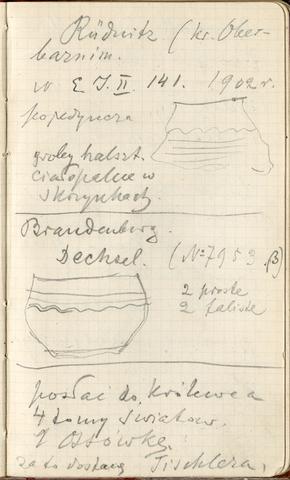 Rüdnitz (kr. Ober-
barnim.
w E. J. II. 141. 1902 r.
pojedyncza
groby halszt.
ciałopalne w
skrzynkach.
Brandenburg.
Dechsel. (No 7953.β)
2 proste
2 faliste
posłać do Królewca
4 tomy Światow.
i Ossówkę.
za to dostanę Tischlera.